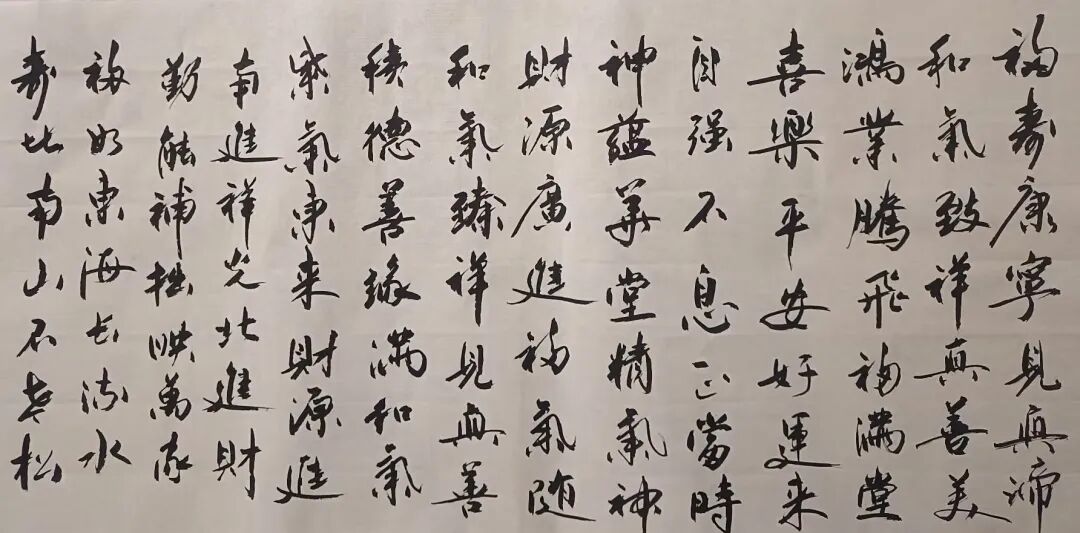 福壽康寧見真諦
和氣致祥真善美
鴻業騰飛福滿堂
喜樂平安好運来
自强不息正當時
神蘊華堂精氣神
財源廣進福氣随
和氣臻祥見真善
積德善緣滿和氣
紫氣東来財源進
南進祥光北進財
勤能補拙映萬家
福如東海長流水
壽比南山不老松